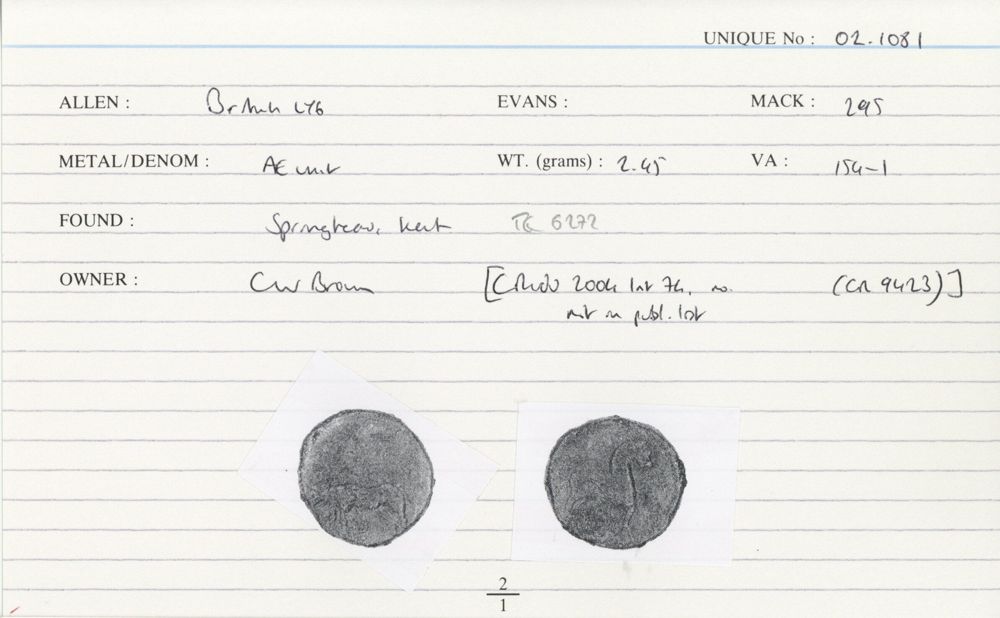 UNIQUE No : 02.1081
ALLEN : British LY6 EVANS : MACK : 295
METAL/DENOM : AE unit WT. (grams) : 2.45 VA : 154-1
FOUND : Springhead, Kent TQ 6272
OWNER : CW Brown [ 2004 list 74, no. (CR 9423)]
not in publ. list
2
1